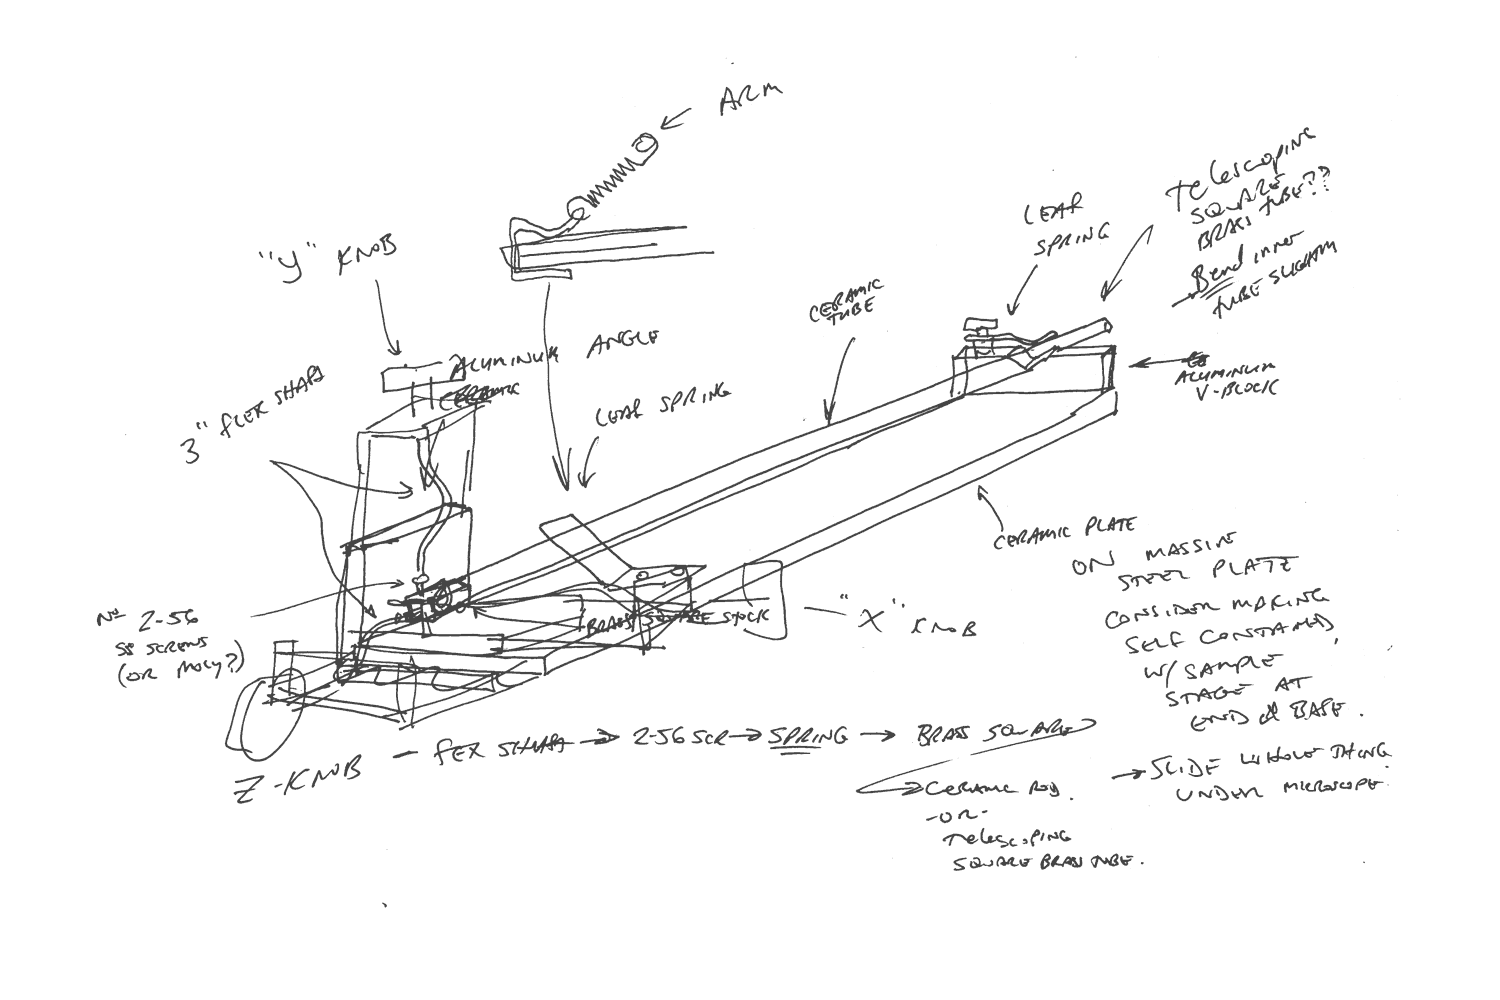 ARM
"y" KNOB
ALUMINUM ANGLE
CERAMIC
3" FLEX SHAFT
LEAF SPRING
CERAMIC
TUBE
LEAF
SPRING
Telescoping
SQUARE
BRASS TUBE??
→ Bend inner
TUBE SLIGHTLY
ALUMINUM
V-BLOCK
CERAMIC PLATE
ON MASSIVE
STEEL PLATE
CONSIDER MAKING
SELF CONTAINED,
W/ SAMPLE
STAGE AT
END OF BASE.
→ SLIDE WHOLE THING
UNDER MICROSCOPE.
2-56
SS SCREWS
(OR MOLY?)
BRASS SQUARE STOCK
"X" KNOB
Z-KNOB — FEX SHAFT → 2-56 SCR → SPRING → BRASS SQUARE
→ CERAMIC ROD.
-OR-
Telescoping
SQUARE BRASS TUBE.